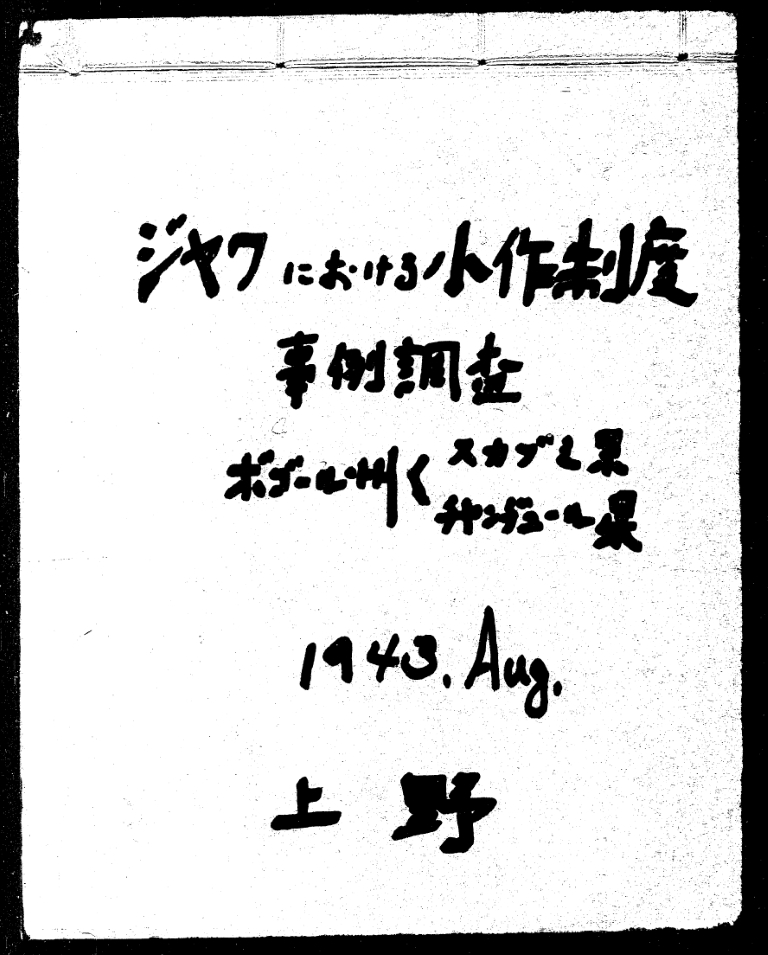 ジャワにおける小作制度
事例調査
ボゴール州く スカブミ県
チャンジュール県
1943. Aug.
上野